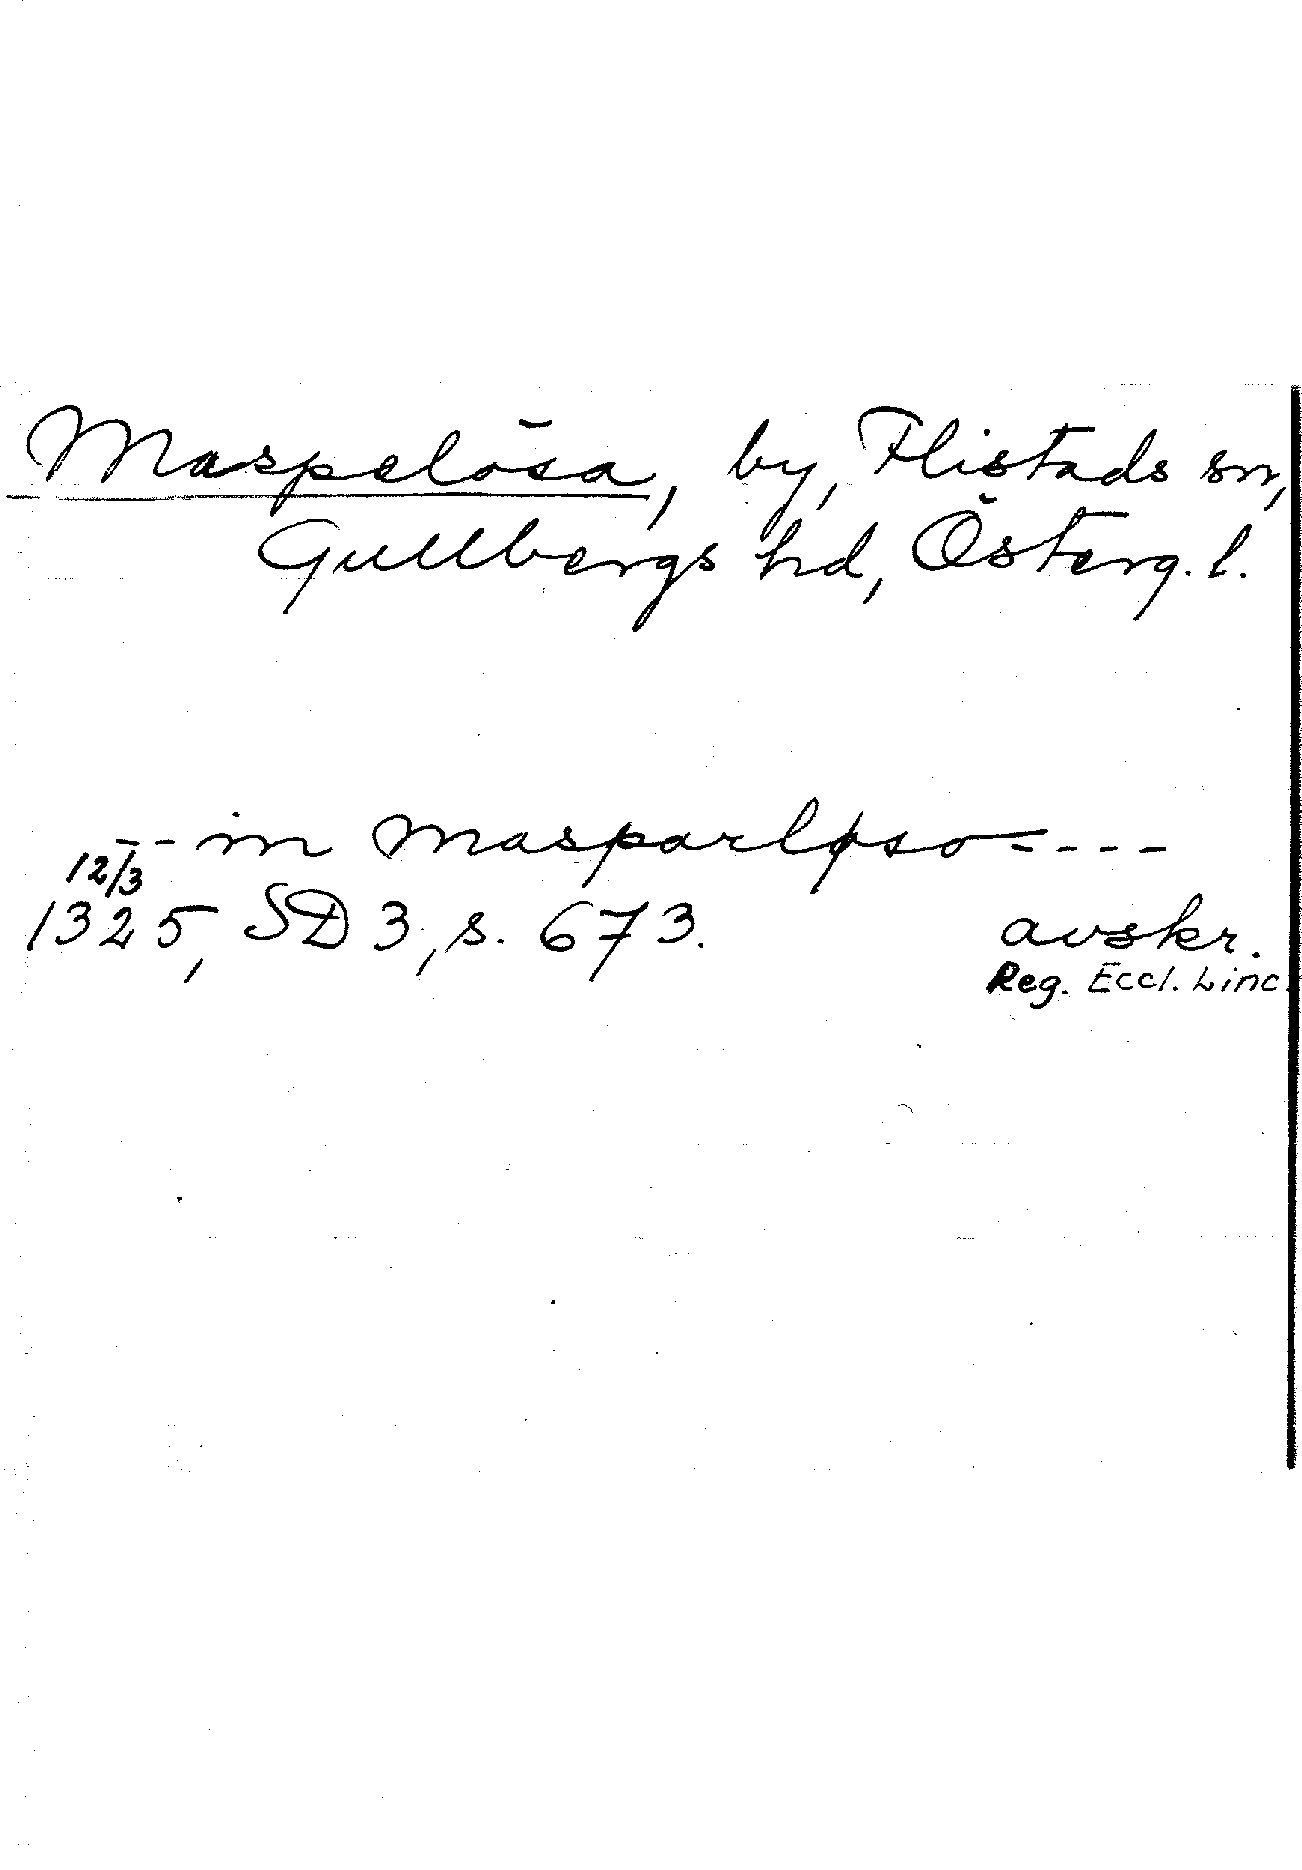 Maspelösa, by, Flistads sn,
Gullbergs hd, Österg. l.
-- in Masparløso ----
12/3
1325, SD 3, s. 673. avskr.
Reg. Eccl. Linc.